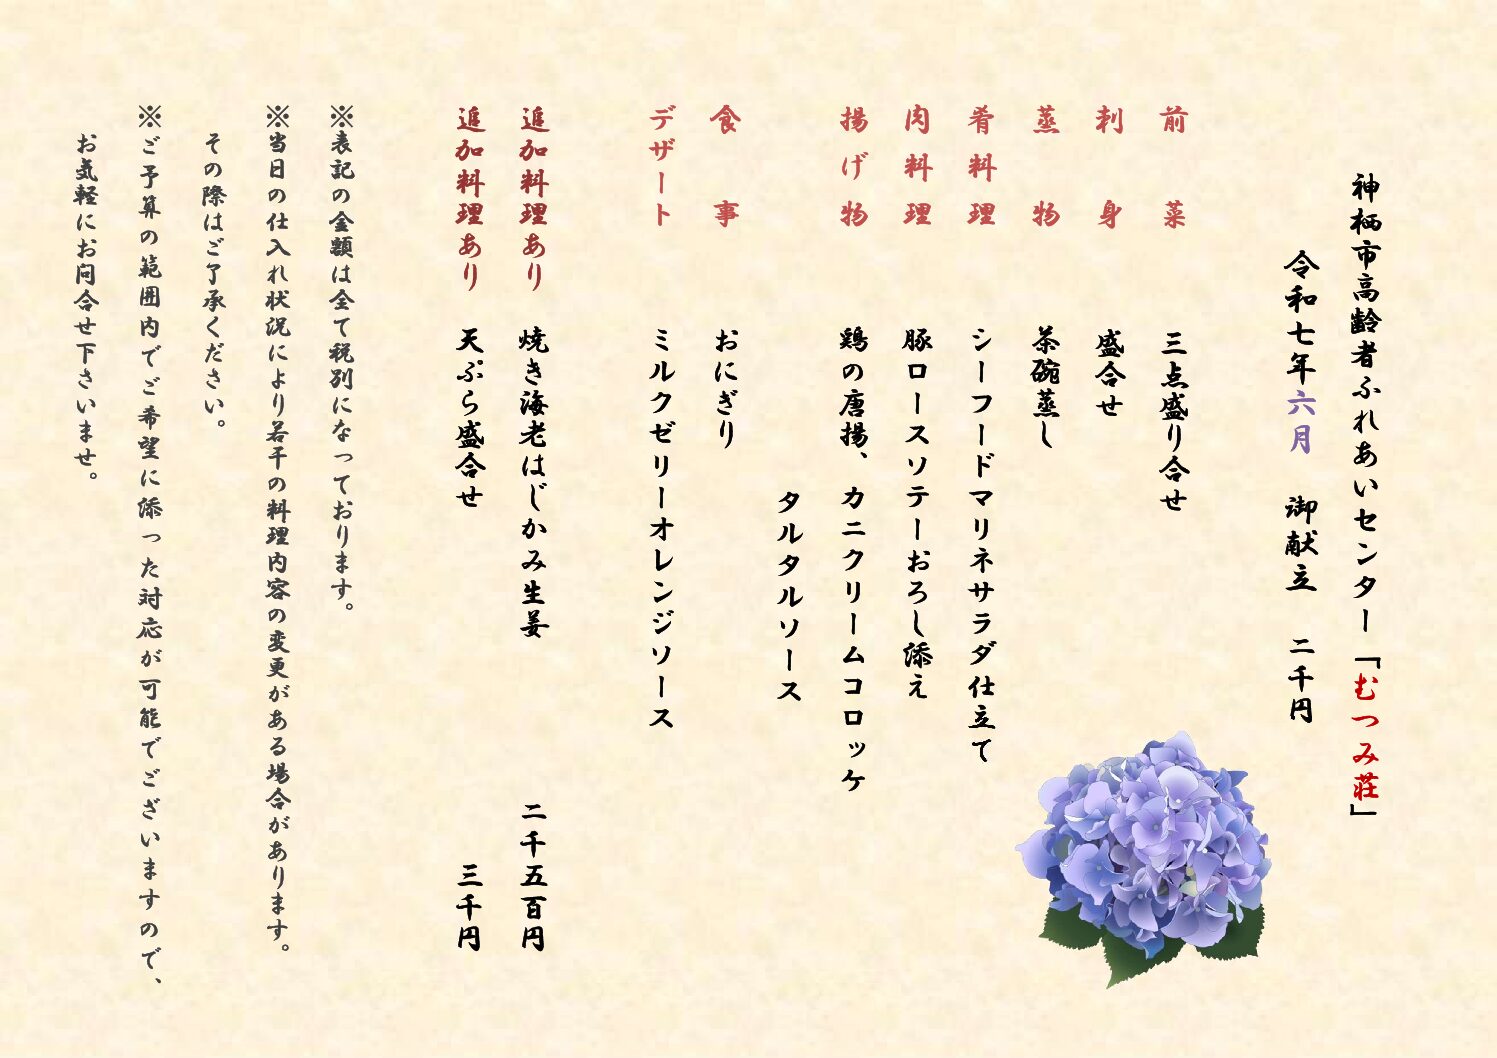 神栖市高齢者ふれあいセンター「むつみ荘」
令和七年六月　御献立　二千円
前菜　三点盛り合せ
刺身　盛合せ
蒸物　茶碗蒸し
肴料理　シーフードマリネサラダ仕立て
肉料理　豚ロースソテーおろし添え
揚げ物　鶏の唐揚、カニクリームコロッケ
タルタルソース
食事　おにぎり
デザート　ミルクゼリーオレンジソース
追加料理あり　焼き海老はじかみ生姜　二千五百円
追加料理あり　天ぷら盛合せ　三千円
※表記の金額は全て税別になっております。
※当日の仕入れ状況により若干の料理内容の変更がある場合があります。
その際はご了承ください。
※ご予算の範囲内でご希望に添った対応が可能でございますので、
お気軽にお問合せ下さいませ。